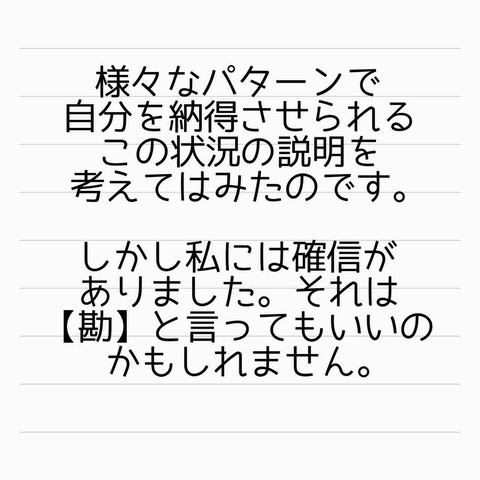 様々なパターンで
自分を納得させられる
この状況の説明を
考えてはみたのです。
しかし私には確信が
ありました。それは
【勘】と言ってもいいの
かもしれません。